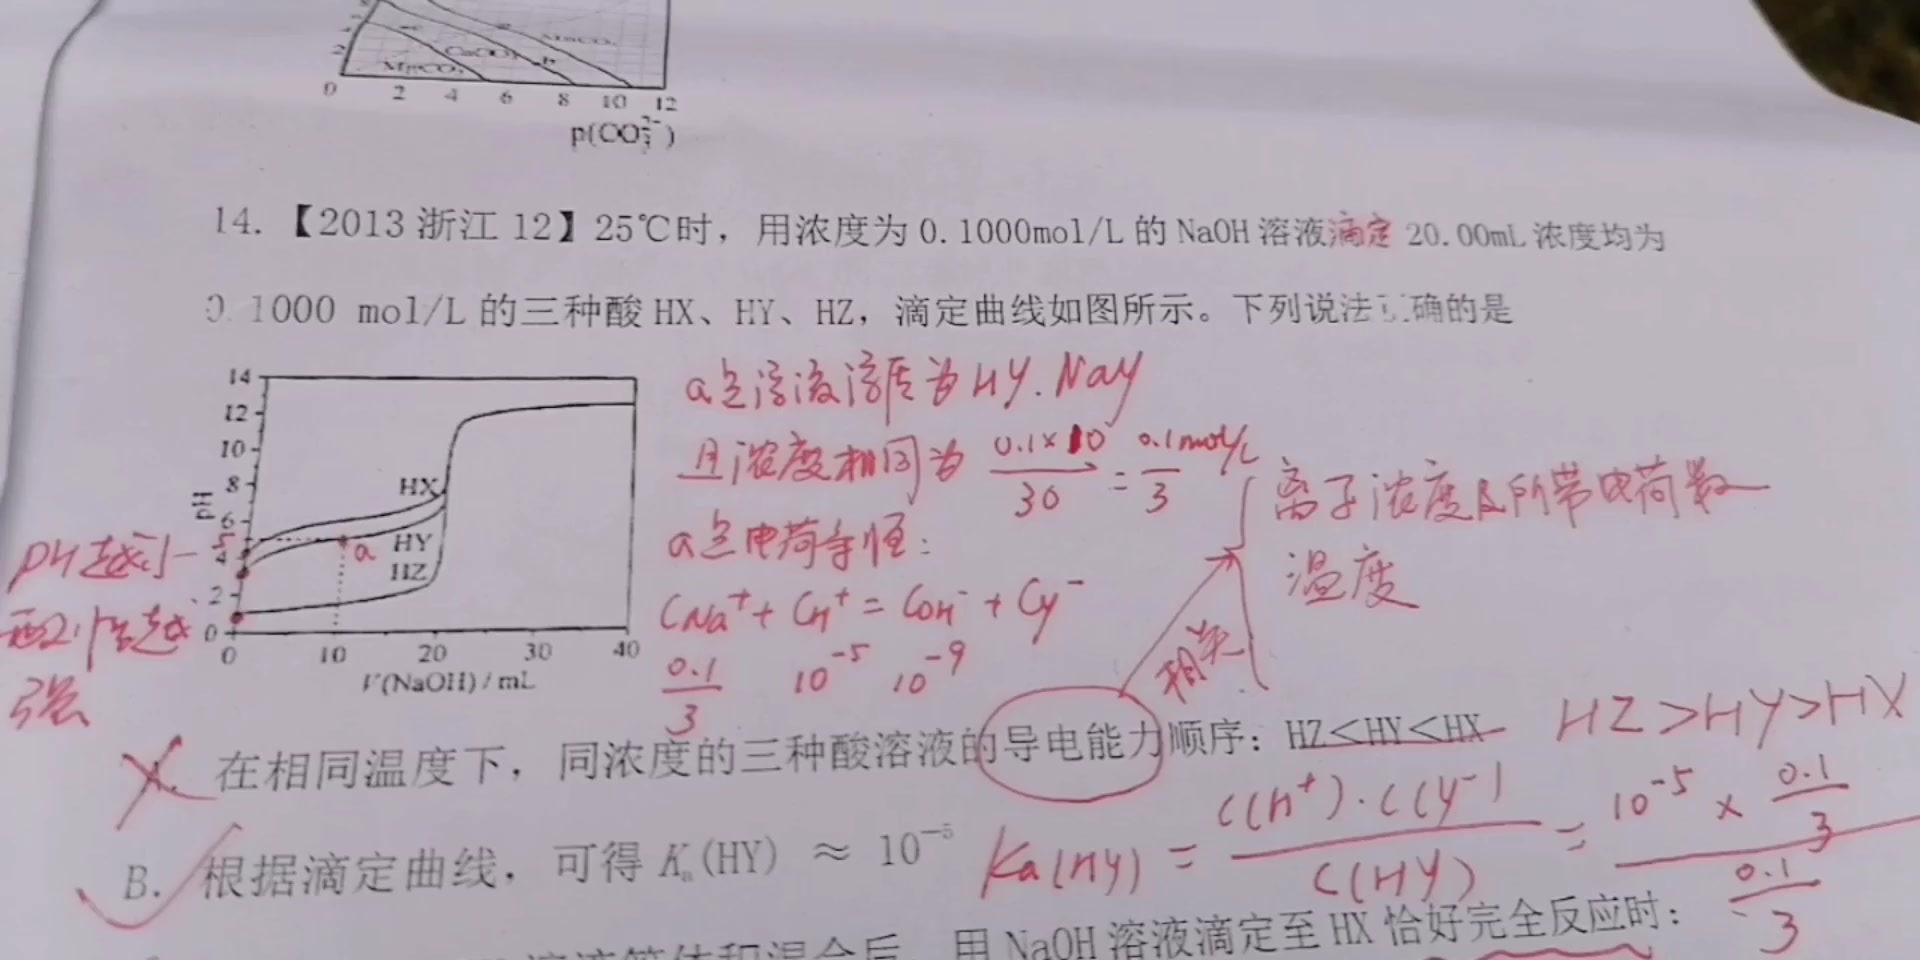 2
MgCO₃ CaCO₃ b MnCO₃
0 2 4 6 8 10 12
p(CO₃²⁻)
14.【2013 浙江 12】25℃时，用浓度为 0.1000mol/L 的 NaOH 溶液滴定 20.00mL 浓度均为
0.1000 mol/L 的三种酸 HX、HY、HZ，滴定曲线如图所示。下列说法正确的是
14
12
10
8
6
4
2
0
pH
5
HX
HY
HZ
a
0 10 20 30 40
V(NaOH)/mL
PH越小
酸性越
强
a点溶液溶质为HY.NaY
且浓度相同为 0.1×10/30 = 0.1/3 mol/L
a点电荷守恒：
CNa⁺ + CH⁺ = COH⁻ + CY⁻
0.1/3 10⁻⁵ 10⁻⁹
离子浓度及所带电荷数
温度
相关
在相同温度下，同浓度的三种酸溶液的导电能力顺序：HZ＜HY＜HX HZ>HY>HX
B. 根据滴定曲线，可得 Kₐ(HY) ≈ 10⁻⁵ Ka(HY) = C(H⁺)·C(Y⁻)/C(HY) = 10⁻⁵ × 0.1/3 / 0.1/3
用 NaOH 溶液滴定至 HX 恰好完全反应时：